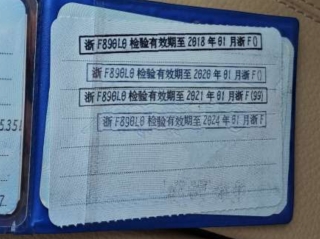 浙F890L0检验有效期至2018年01月浙FQ
浙F890L0检验有效期至2020年01月浙FQ
浙F890L0检验有效期至2021年01月浙F(99)
浙F890L0检验有效期至2024年01月浙F
5.351
Z